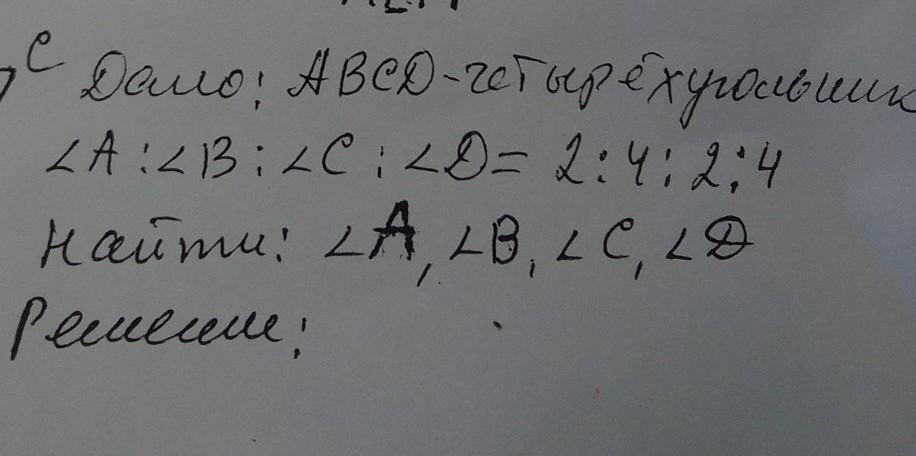 C Дано: ABCD-четырёхугольник
∠A:∠B:∠C:∠D= 2:4:2:4
Найти: ∠A, ∠B, ∠C, ∠D
Решение: